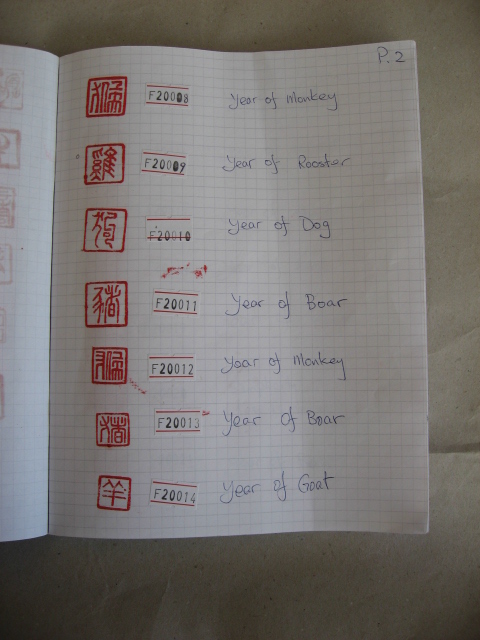 P.2
猴 F20008 Year of Monkey
雞 F20009 Year of Rooster
狗 F20010 Year of Dog
豬 F20011 Year of Boar
猴 F20012 Year of Monkey
猪 F20013 Year Of Boar
羊 F20014 Year of Goat